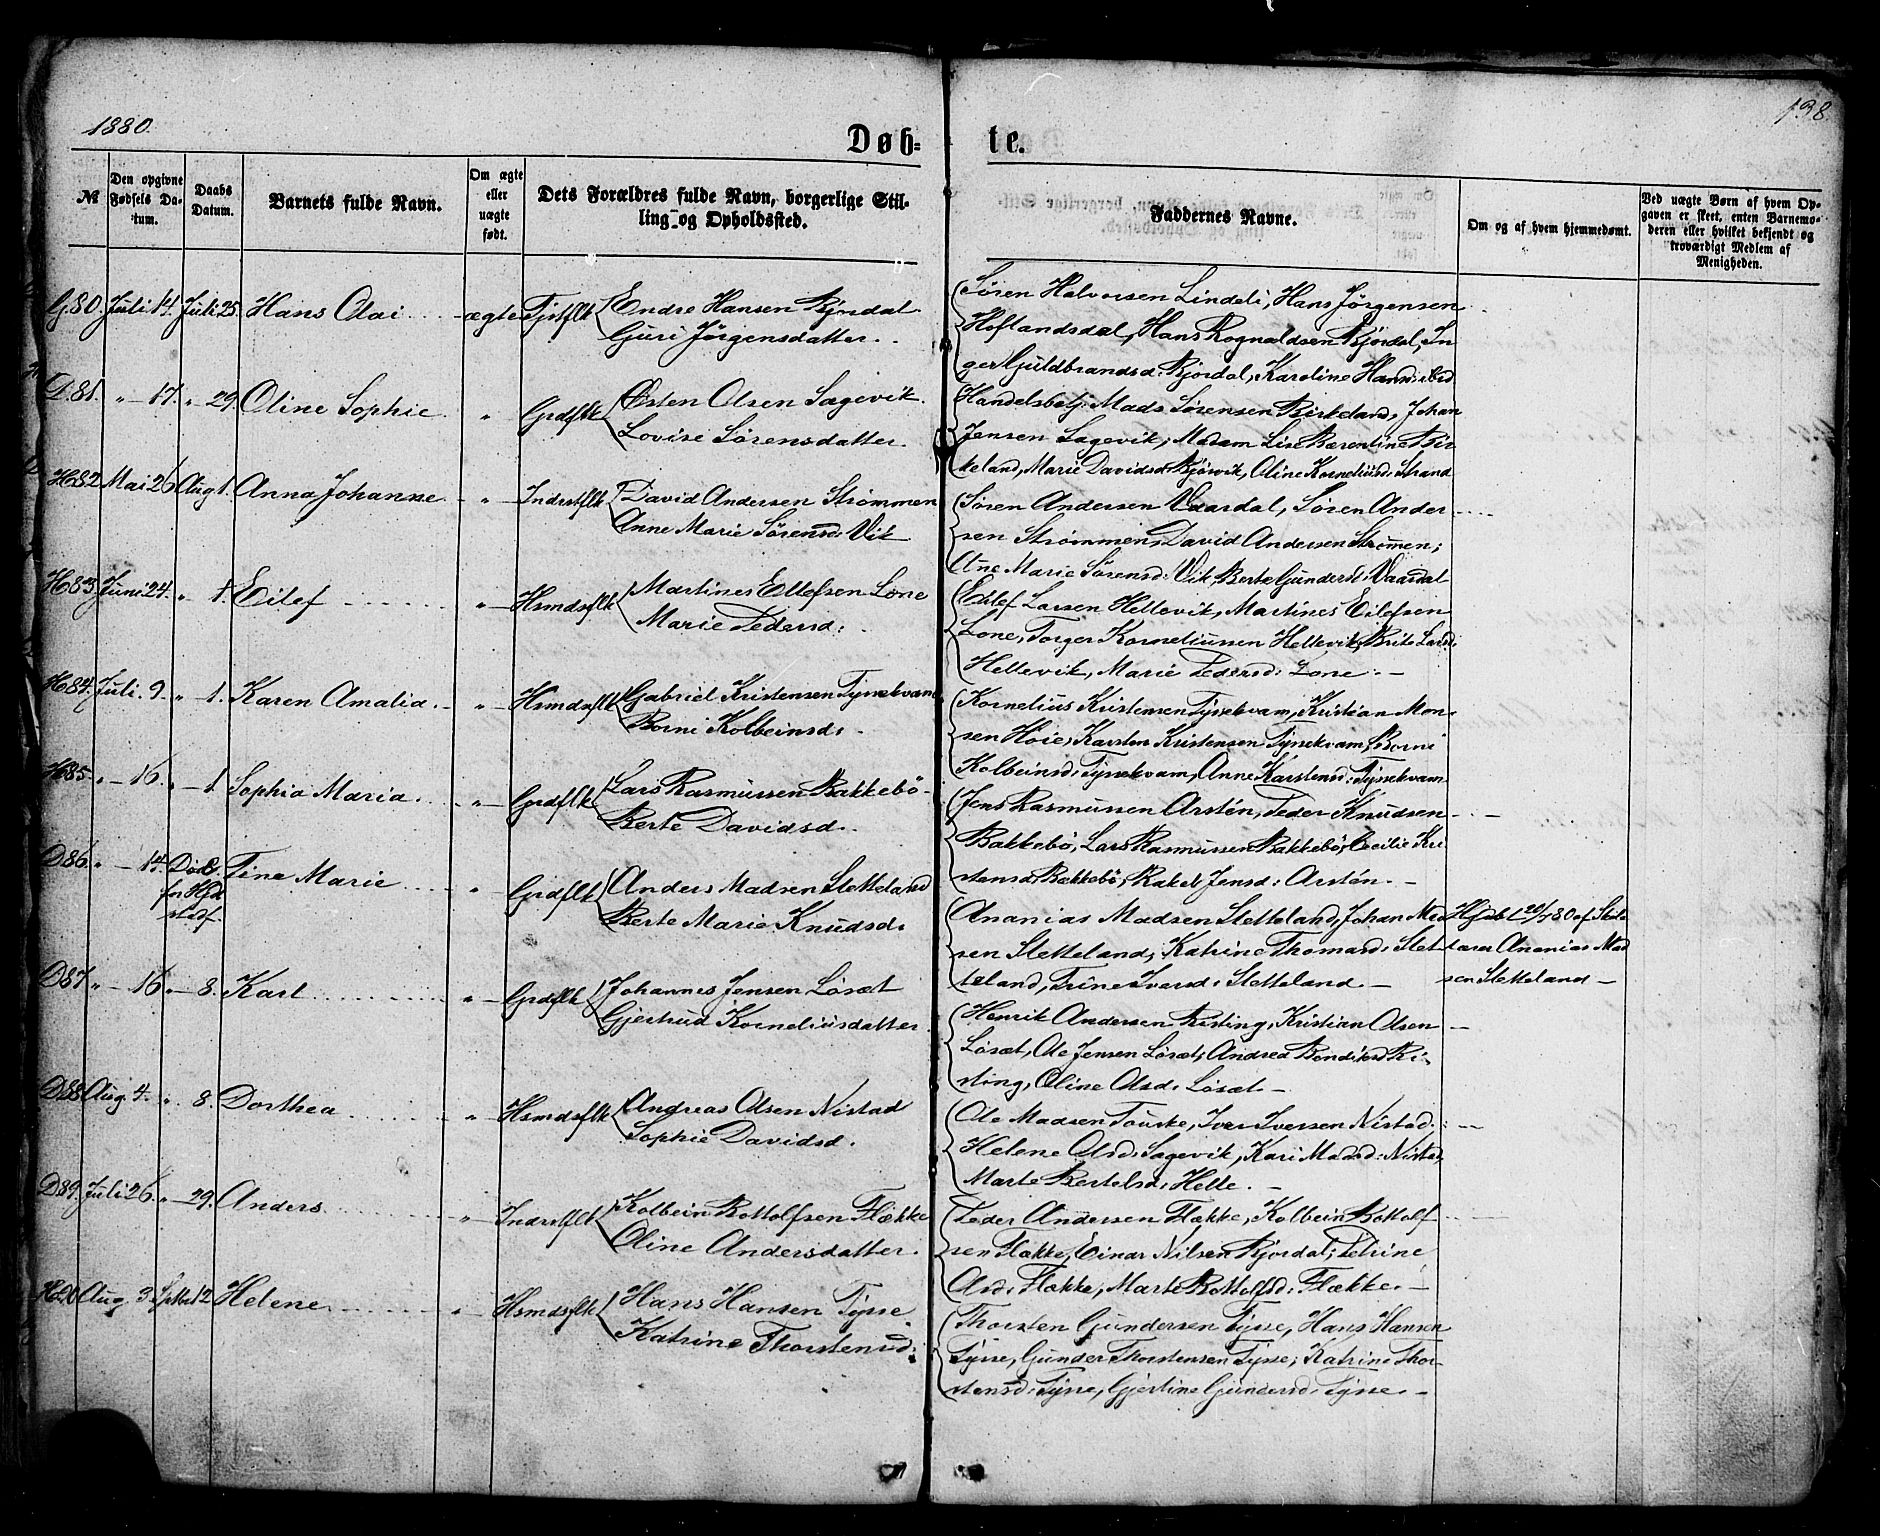 1880.
138.
Døb=
te.
№
Den opgivne Fødsels Datum.
Daabs Datum.
Barnets fulde Navn.
Om ægte eller uægte født.
Dets Forældres fulde Navn, borgerlige Stilling og Opholdssted.
Faddernes Navne.
Om og af hvem hjemmedømt.
Ved uægte Børn af hvem Opgaven er skeet, enten Barnemoderen eller hvilket bekjendt og troværdigt Medlem af Menigheden.
G80. Juli 14. Juli 25. Hans Olai ægte Tjrflk Endre Hansen
Guri Jørgensdatter.
Søren Halvorsen Lindeli, Hans Jørgensen
Hoflandsdal, Hans Rognaldsen Bjordal, In
ger Guldbrandsd: Bjordal, Karoline
D81. " - 17. " 29. Oline Sophie " Grdflk Østen Olsen Sagevik.
Lovise Sørensdatter.
Handelsbetj. Mads Sørensen Birkeland, Johan
Jensen Sagevik, Madam Lise Berentine Bir
keland, Marie Davidsd. Oline Korneliusd: Strand
H82 Mai 26 Aug 1. Anna Johanne " Indrstflk David Andersen Strømmen
Anne Marie Sørensd: Vik
Søren Andersen Vaardal, Søren Ander
sen Strømmen, David Andersen Strømen;
Ane Marie Sørensd: Vik Berte Gundersd: Vaardal
H83. Juni 24. " 1. Eilef " Hsmdsflk Martines Ellefsen Lone
Marie Pedersd:
Eilef Larsen Hellevik, Martines Eilefsen
Lone, Torger Korneliussen Hellevik, Brite Larsd:
Hellevik, Marie Pedersd: Lone. -
H84. Juli. 9. " 1. Karen Amalia. " Hsmdsflk Gabriel Kristensen Tyssekvam
Borni Kolbeinsd:
Kornelius Kristensen Tyssekvam, Kristian Mon
sen Høie, Karsten Kristensen Tyssekvam, Borni
Kolbeinsd: Tyssekvam, Anne Karstensd: Tyssekvam
H85. " - 16. " 1 Sophia Maria. " Grdflk Lars Rasmussen Bakkebø
Berte Davidsd.
Jens Rasmussen Arstén, Peder Knudsen
Bakkebø, Lars Rasmussen Bakkebø, Cecilie Kri
stensd. Bakkebø, Rakel Jensd: Arstén. -
D86. " - 14. Død
før Hjd
stadf. Tine Marie " Grdflk Anders Madsen Sletteland
Berte Marie Knudsd:
Ananias Madsen Sletteland, Johan Mad
sen Sletteland, Katrine Thomasd: Slet
teland, Trine Iversd: Sletteland. -
Hjdbt 20/7 80 af Skole
lærer Ananias Mad
sen Sletteland -
D87 " - 16 " 8. Karl " Grdflk Johannes Jensen Løsæt
Gjertrud Korneliusdatter.
Henrik Andersen Risting, Kristian Olsen
Løsæt, Ole Jensen Løsæt, Andrea Bendiksd Ri
sting, Oline Olsd: Løsæt. -
D88 Aug. 4. " 8. Dorthea " Hsmdsflk Andreas Olsen Nistad
Sophie Davidsd.
Ole Madsen Iver Iversen Nistad,
Helene Olsd: Sagevik, Kari Madsd: Nistad,
Marte Bertelsd: Helle. -
D89. Juli 26. " 29. Anders " Indrstflk Kolbein Bottolfsen Flække
Oline Andersdatter.
Peder Andersen Flække, Kolbein Bottolf
sen Flække, Einar Nilsen Bjordal, Petrine
Olsd: Flække, Marte Bottolfsd: Flække. -
H90 Aug. 3. Septbr 12 Helene " Hsmdsflk Hans Hansen Tysse
Katrine Thorstensd:
Thorsten Gundersen Tysse, Hans Hansen
Tysse, Gunder Thorstensen Tysse, Katrine Thor
stensd: Tysse, Gjertine Gundersd: Tysse. -